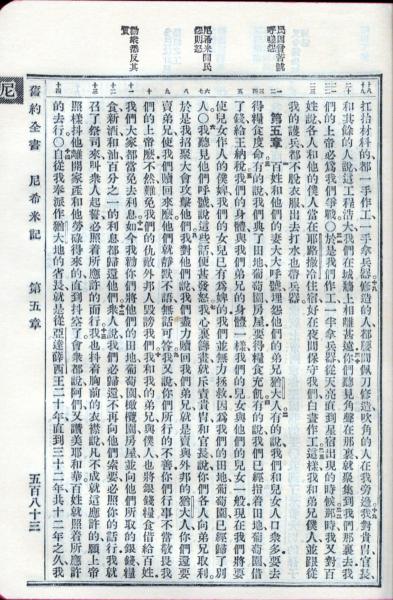 民因貧苦號
呼嗟怨
尼希米聞民
怨則怒
勸衆悉反其
質
扛抬材料的都一手作工一手拿兵器修造的人都腰間佩刀修造吹角的人在我旁邊我對貴冑官長
和其餘的人說這工程浩大我們在城牆上相離甚遠你們聽見角聲在那裏就聚集到我們那裏去我
們的上帝必爲我們爭戰○於是我們作工一半拿兵器從天亮直到星宿出現的時候那時我又對百
姓說各人和他的僕人當在耶路撒冷住宿好在夜間保守我們白晝作工這樣我和弟兄僕人並跟從
我的護兵都不脫衣服出去打水也帶兵器
第五章 百姓和他們的妻大大呼號埋怨他們的弟兄猶大人有的說我們和兒女人口衆多要去
得糧食度命有的說我們典了田地葡萄園房屋要得糧食充飢有的說我們已經指着田地葡萄園借
了錢給王納稅我們的身體與我們弟兄的身體一樣我們的兒女與他們的兒女一般現在我們將要
使兒女作人的僕婢我們的女兒已有爲婢的我們並無力拯救因爲我們的田地葡萄園已經歸了別
人○我聽見他們呼號說這些話便甚發怒我心裏籌畫就斥責貴冑和官長說你們各人向弟兄取利
於是我招聚大會攻擊他們我對他們說我們盡力贖回我們弟兄就是賣與外邦的猶大人你們還要
賣弟兄使我們贖回來麼他們就靜默不語無話可答我又說你們所行的不善你們行事不當敬畏我
們的上帝麼不然難免我們的仇敵外邦人毀謗我們我和我的弟兄與僕人也將銀錢糧食借給百姓
我們大家都當免去利息如今我勸你們將他們的田地葡萄園橄欖園房屋並向他們所取的銀錢糧
食新酒和油百分之一的利息都歸還他們衆人說我們必歸還不再向他們索要必照你的話行我就
召了祭司來叫衆人起誓必照着所應許的而行我也抖着胸前的衣襟說凡不成就這應許的願上帝
照樣抖他離開家產和他勞碌得來的直到抖空了會衆都說阿們又讚美耶和華百姓就照着所應許
的去行○自從我奉派作猶大地的省長就是從亞達薛西王二十年直到三十二年共十二年之久我
尼
舊約全書 尼希米記 第五章 五百八十三